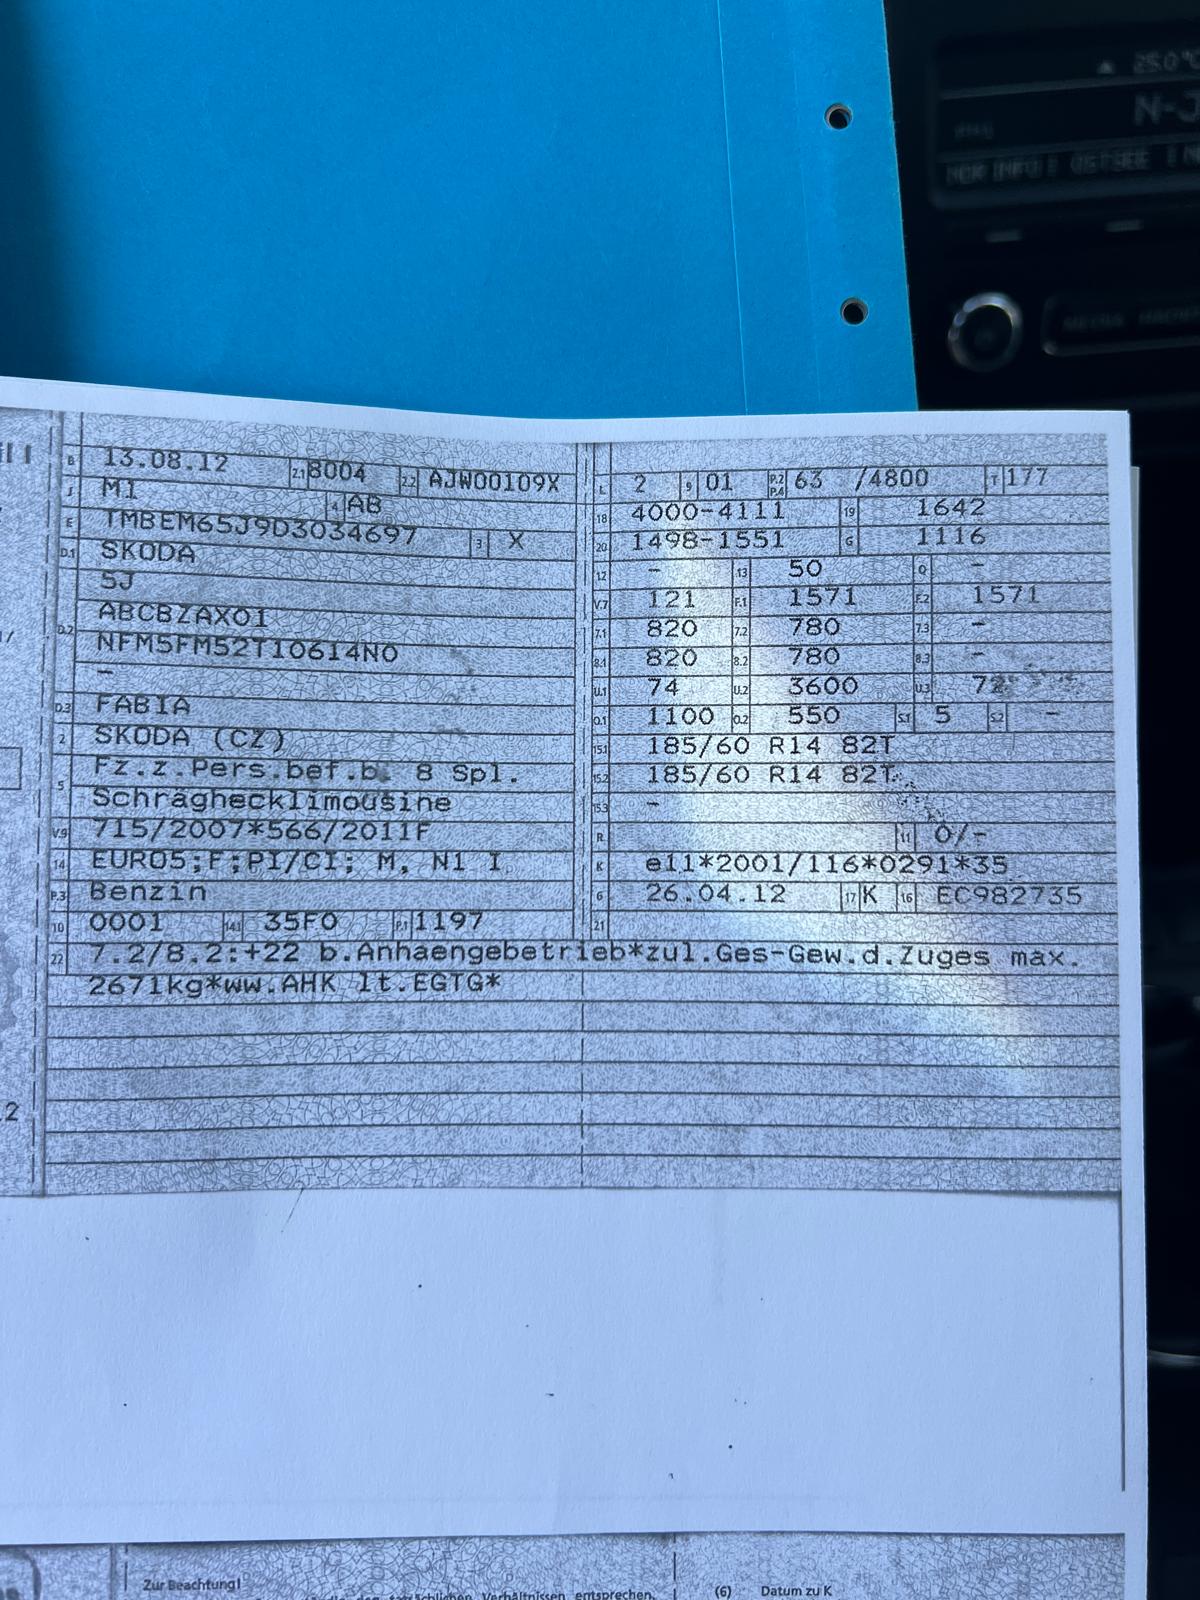 25.0°C
N-J
NDR INFO | OSTSEE | N
MEDIA
il I
B 13.08.12 2.1 8004 2.2 AJW00109X
J M1 4 AB
E TMBEM65J9D3034697 3 X
D.1 SKODA
5J
D.2 ABCBZAX01
NFM5FM52T10614N0
–
D.3 FABIA
2 SKODA (CZ)
5 Fz.z.Pers.bef.b. 8 Spl.
Schräghecklimousine
V.9 715/2007*566/2011F
14 EURO5;F;PI/CI; M, N1 I
P.3 Benzin
10 0001 14.1 35F0 P.1 1197
L 2 9 01 P.2 P.4 63 /4800 T 177
18 4000-4111 19 1642
20 1498-1551 G 1116
12 – 13 50 Q –
V.7 121 F.1 1571 F.2 1571
7.1 820 7.2 780 7.3 –
8.1 820 8.2 780 8.3 –
U.1 74 U.2 3600 U.3 72
O.1 1100 O.2 550 S.1 5 S.2 –
15.1 185/60 R14 82T
15.2 185/60 R14 82T
15.3 –
R 11 0/-
K e11*2001/116*0291*35
6 26.04.12 17 K 16 EC982735
21
22 7.2/8.2:+22 b.Anhaengebetrieb*zul.Ges-Gew.d.Zuges max.
2671kg*ww.AHK lt.EGTG*
.2
Zur Beachtung!
Verhältnissen entsprechen,
(6) Datum zu K